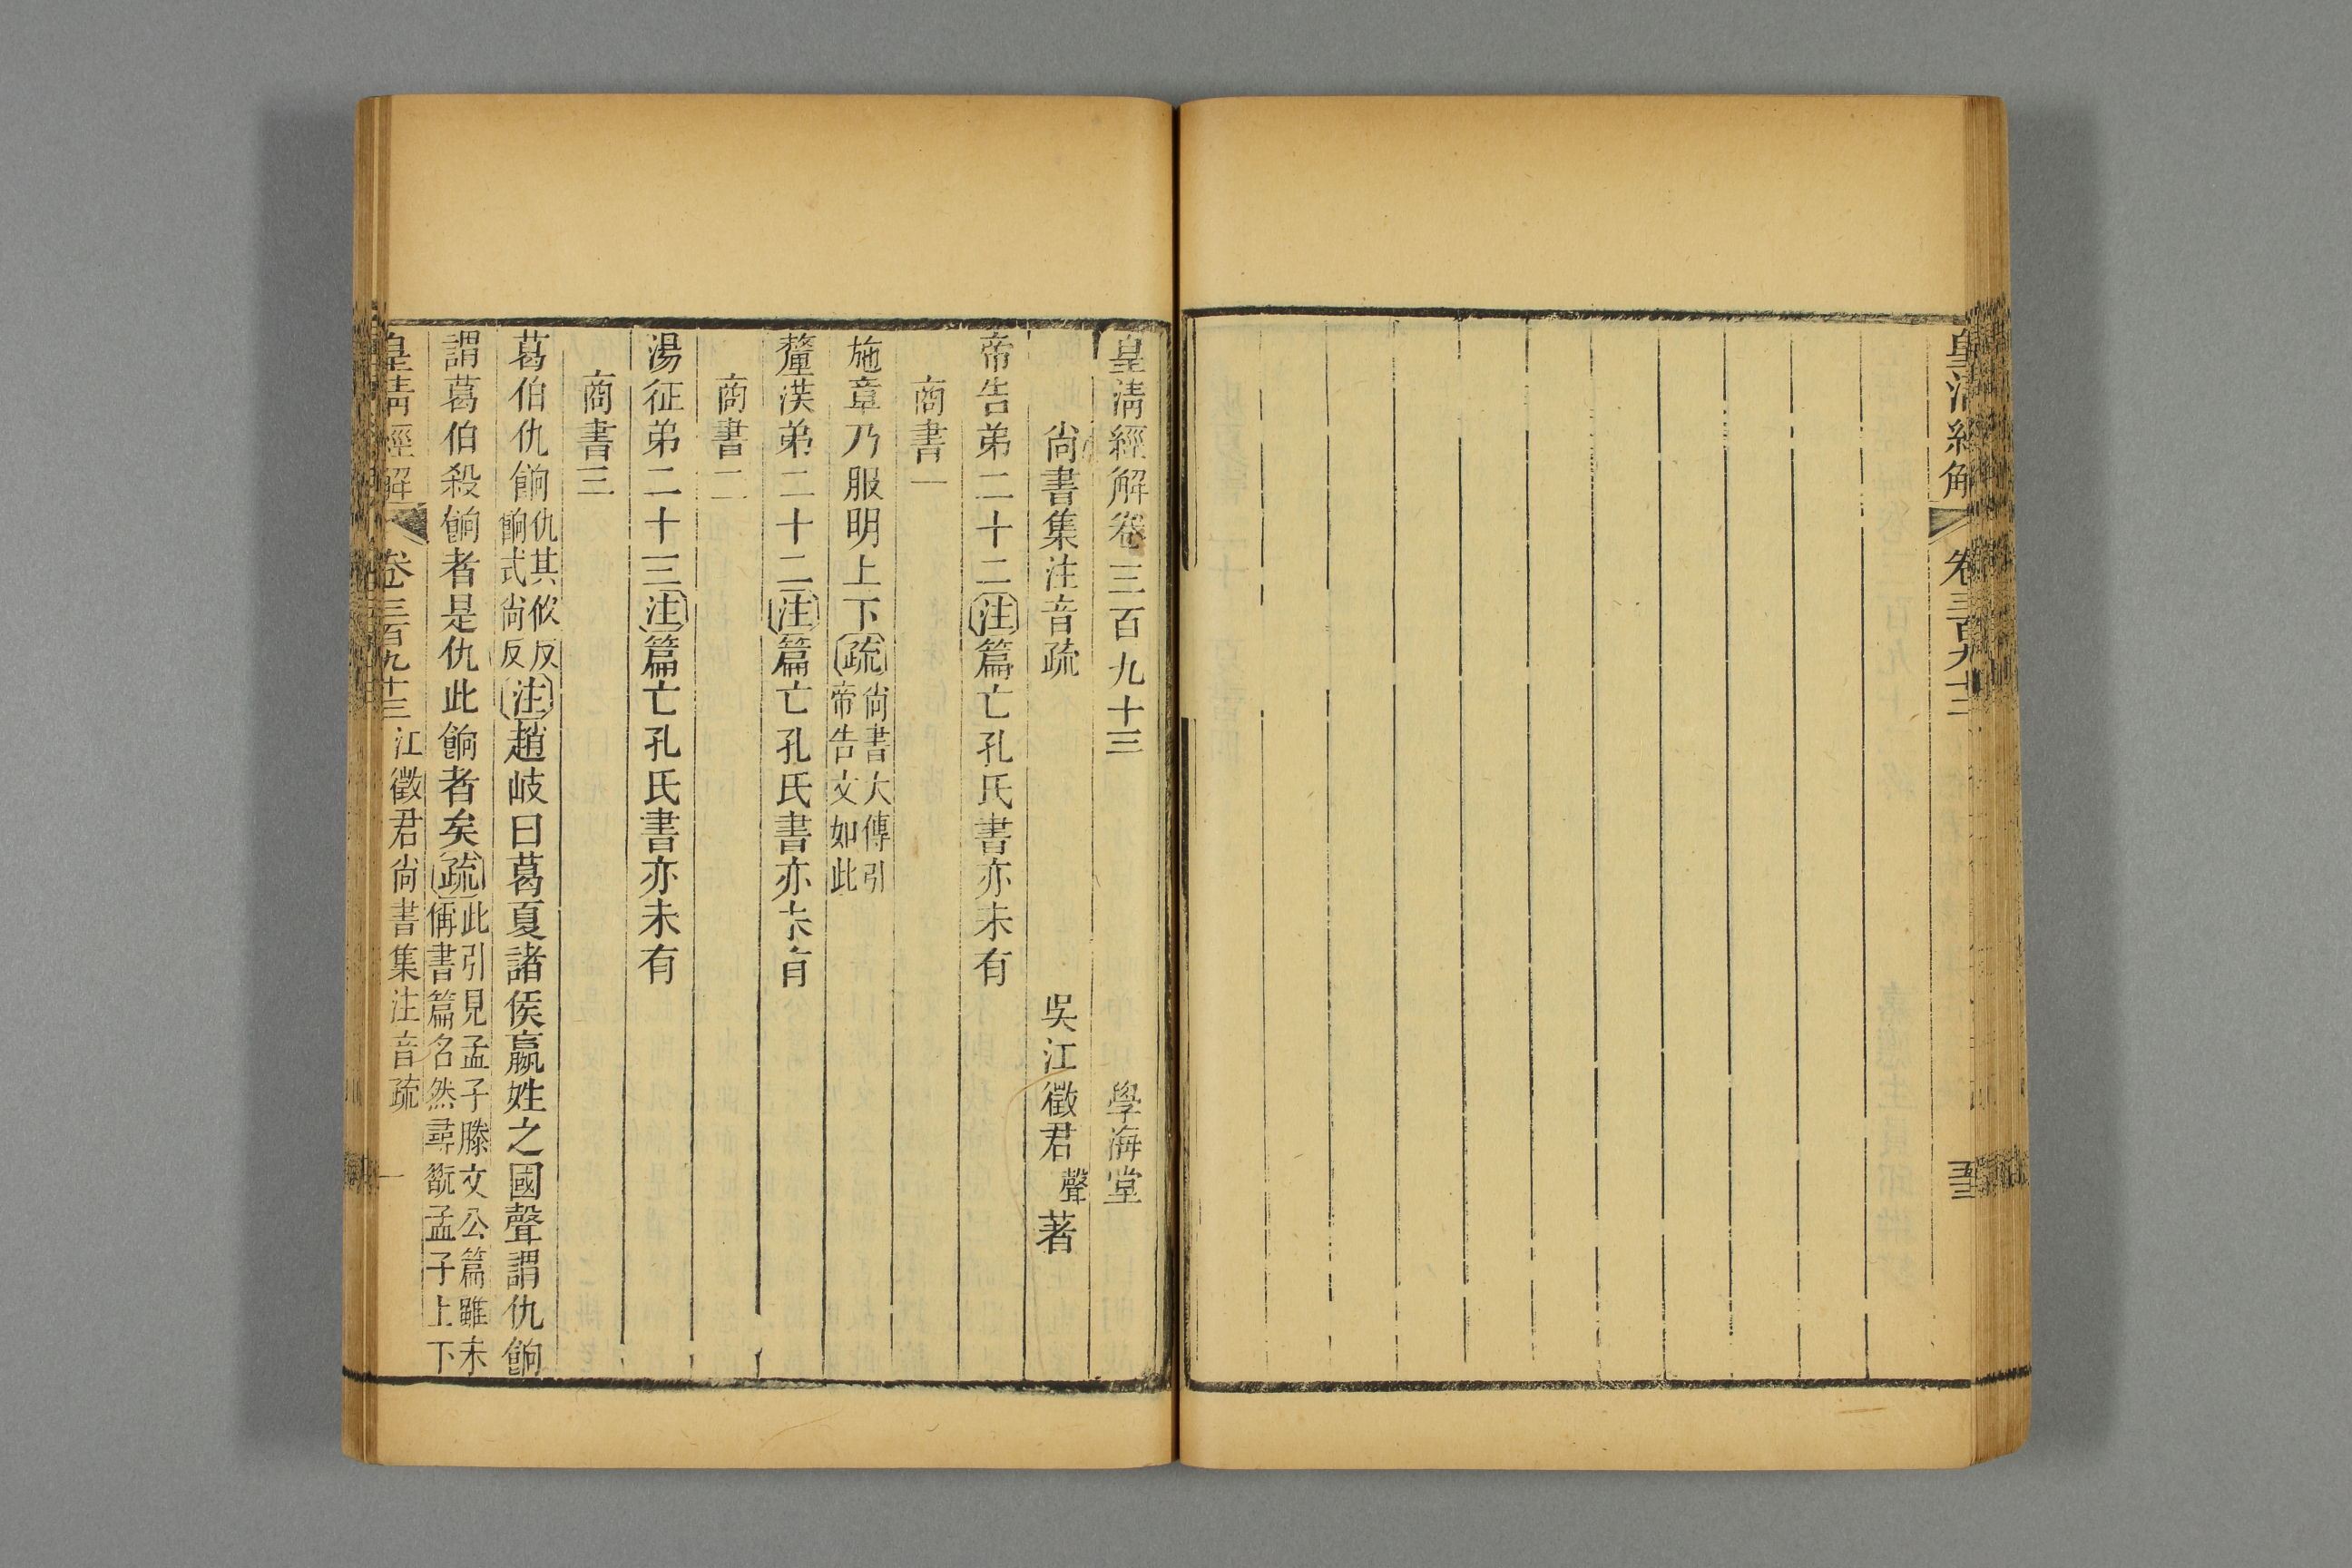 皇清經解
卷三百九十二
皇清經解卷三百九十三
學海堂
尚書集注音疏
吳江徵君聲著
帝告弟二十二〔注〕篇亡孔氏書亦未有
商書一
施章乃服明上下〔疏〕尚書大傳引
帝告文如此
釐沃弟二十二〔注〕篇亡孔氏書亦未有
商書二
湯征弟二十三〔注〕篇亡孔氏書亦未有
商書三
葛伯仇餉仇其攸反
餉式尚反〔注〕趙岐曰葛夏諸侯嬴姓之國聲謂仇餉
謂葛伯殺餉者是仇此餉者矣〔疏〕此引見孟子滕文公篇雖未
偁書篇名然尋翫孟子上下
皇清經解
卷三百九十三
江徵君尚書集注音疏
一